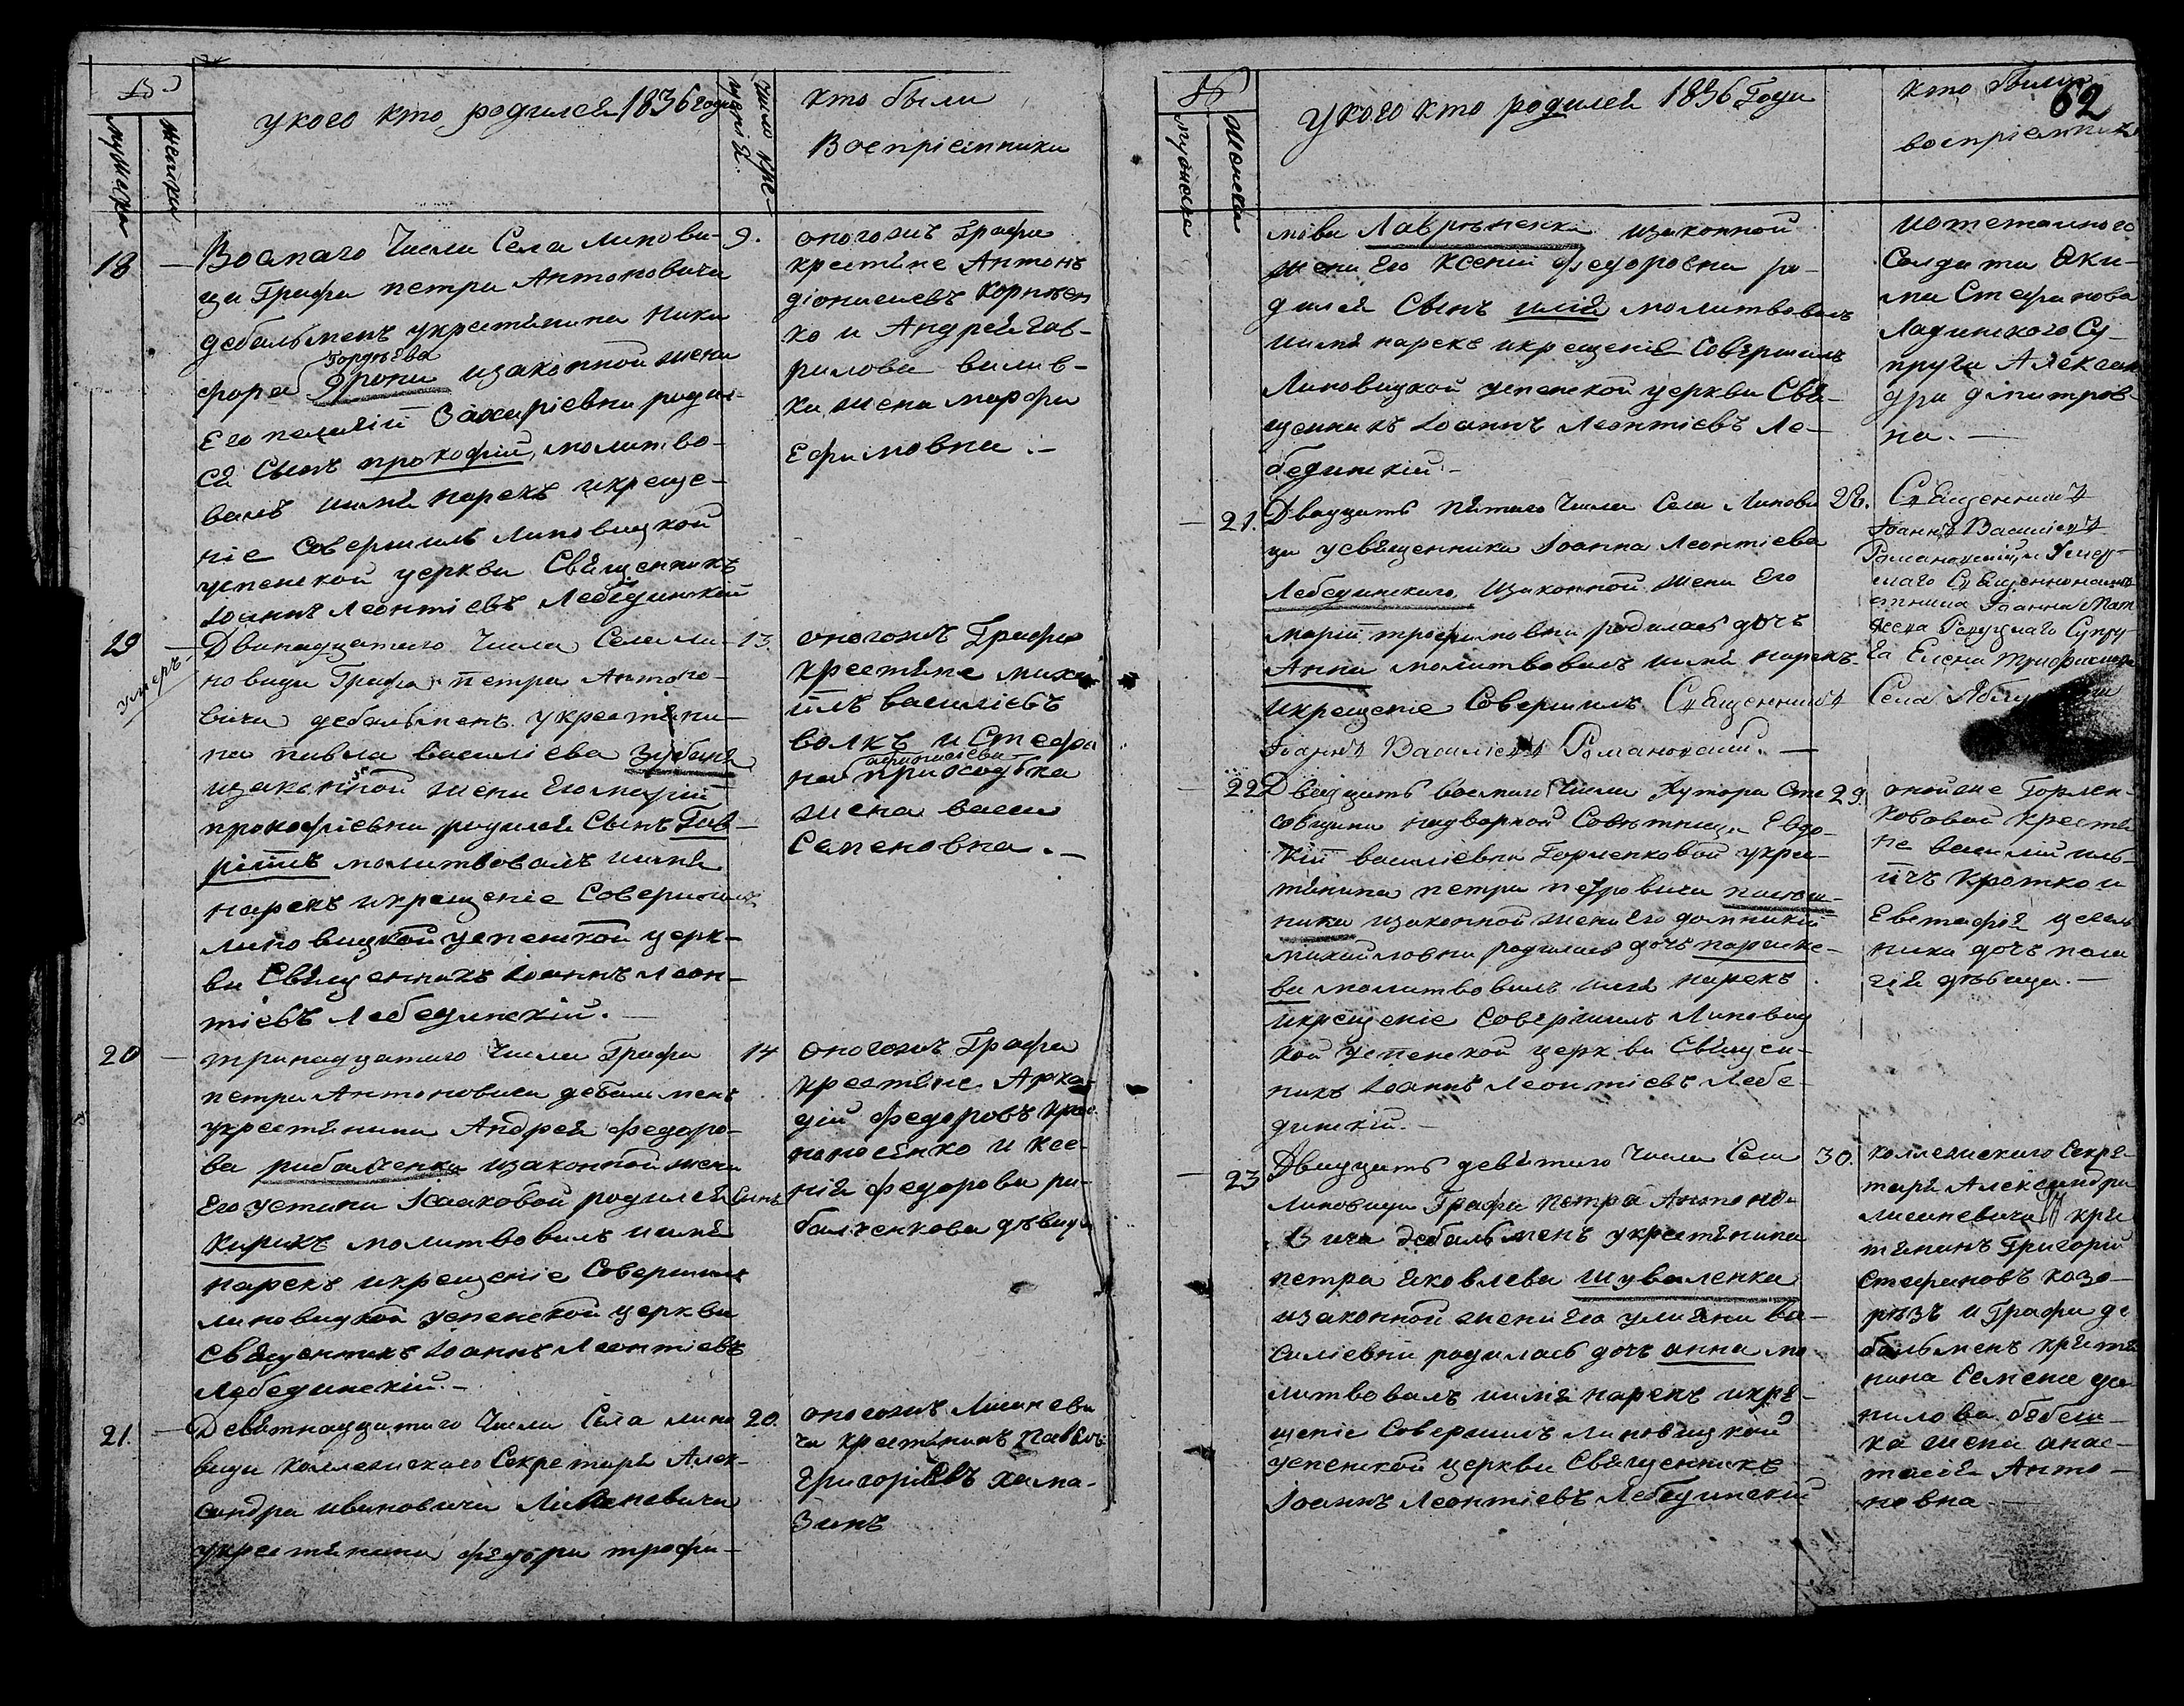 мужеска
женска
у кого кто родился 1836 года
число кре-
щенія
кто были
Воспріемники
18
Восмаго Числа Села Липови-
9.
ци Графа петра Антоновича
дебальменъ укрестянина Ники
Гордѣева
фора Ярони изаконной жени
Его пелагіи Захаріевни родил-
ся Сынъ прокофій, молитво-
валъ имя нарекъ икреще-
ніе Совершилъ Липовицкой
успенской церкви Священникъ
Іоаннъ Леонтіевъ Лебединскій
оногожъ Графа
крестяне Антонъ
діонисіевъ Корнѣен
ко и Андрея Гав-
рилова
жена марфа
Ефимовна.
19
умеръ
Двинадцатаго Числа Села ли-
13.
повици Графа петра Антоно-
вича дебальменъ укрестяни-
на павла василіева Зубаня
изаконной жени Его маріи
прокофіевни родился Сынъ Гав-
ріилъ молитвовалъ имя
нарекъ икрещеніе Совершилъ
липовицкой успенской церк-
ви Священникъ Іоаннъ леон-
тіевъ Лебединскій.
оногожъ Графа
крестяне миха
илъ василіевъ
волкъ и Стефа
афанасіева
на приходька
жена васса
Семеновна.
20
тринадцатаго Числа Графа
14
петра Антоновича дебальменъ
укрестянина Андрея федоро-
ва рибалченка изаконной жени
Его устини Ісааковой родился Синъ
Кирикъ молитвовалъ имя
нарекъ икрещеніе Совершилъ
липовицкой успенской церкви
Священникъ Іоаннъ Леонтіевъ
Лебединскій.
оногожъ Графа
крестяне Арка
дій федоровъ
и ксе-
нія федорова ри-
балченкова дѣвица
21.
Девятнадцатаго Числа Села липо
20.
вици коллежскаго Секретаря Алек-
сандра ивановича Лисаневича
укрестянина федора трофи-
оногожъ Лисаневи
ча крестянинъ Павелъ
Григоріевъ хома-
зинъ
мужеска
Женска
У кого кто родился 1836 Года
кто были
62
воспріемники
мова Лаврѣненка изаконной
жени Его Ксеніи федоровни ро-
дился Сынъ илія молитвовалъ
имя нарекъ икрещеніе Совершилъ
Липовицкой успенской церкви Свя-
щеникъ Іоаннъ Леонтіевъ Ле-
бединскій
Солдата Яки-
ма Стефанова
Ладинского Су-
пруга Алексан
дра дмитров-
на.
21.
Двадцать пятаго Числа Села Липови
26.
ци усвященника Іоанна Леонтіева
Лебединскаго изаконной жени Его
маріи трофимовни родилась дочь
Анна молитвовалъ имя нарекъ
икрещеніе Совершилъ Священникъ
Іоаннъ Василіевъ Романовский.
Священникъ
Іоаннъ Василіевъ
Романовский и Умер-
шаго Священнонамѣ-
стника Іоанна Мат
Супру-
га Елена Трифиліева
Села
22
Двадцать восмаго Числа Хутора Сте
29.
совщини надворной Совѣтници Евдо-
кіи василіевни Горленковой укрес-
тянина петра петровича
ника изаконной жени Его домникіи
михайловни родилась дочь параске-
ва молитвовалъ имя нарекъ
икрещеніе Совершилъ Липовиц
кой успенской церкви Священ-
никъ Іоаннъ Леонтіевъ Лебе-
динскій.
онойже Горлен-
ковой Крестя
не василій иль-
ичъ кротко и
Евстафія
ника дочь пела
гія дѣвица.
23
Двадцать девятаго Числа Села
30.
Липовици Графа Петра Антоно-
вича дебальменъ укрестянина
петра Яковлева шуваленка
изаконной жени Его уліяни Ва-
силіевни родилась дочь анна мо-
литвовалъ имя нарекъ икре-
щеніе Совершилъ липовицкой
успенской церкви Священникъ
Іоаннъ Леонтіевъ Лебединскій
коллежского Секре-
таря Александра
лисаневича кре
тянинъ Григорій
Стефановъ козо-
рѣзъ и Графа де
бальменъ крестя
нина Семена да
нилова
ка жена анас-
тасія Анто-
новна